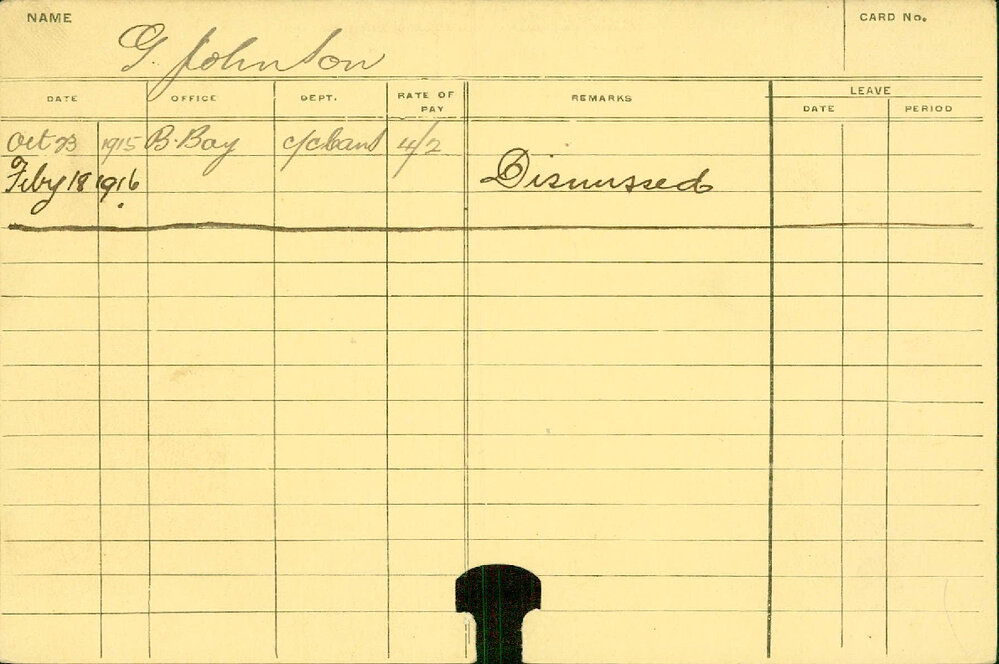 NAME
CARD No.
G. Johnson
DATE OFFICE DEPT. RATE OF PAY REMARKS LEAVE
DATE PERIOD
Oct 23 1915 B. Bay 4/2
Feby 18 1916 Dismissed